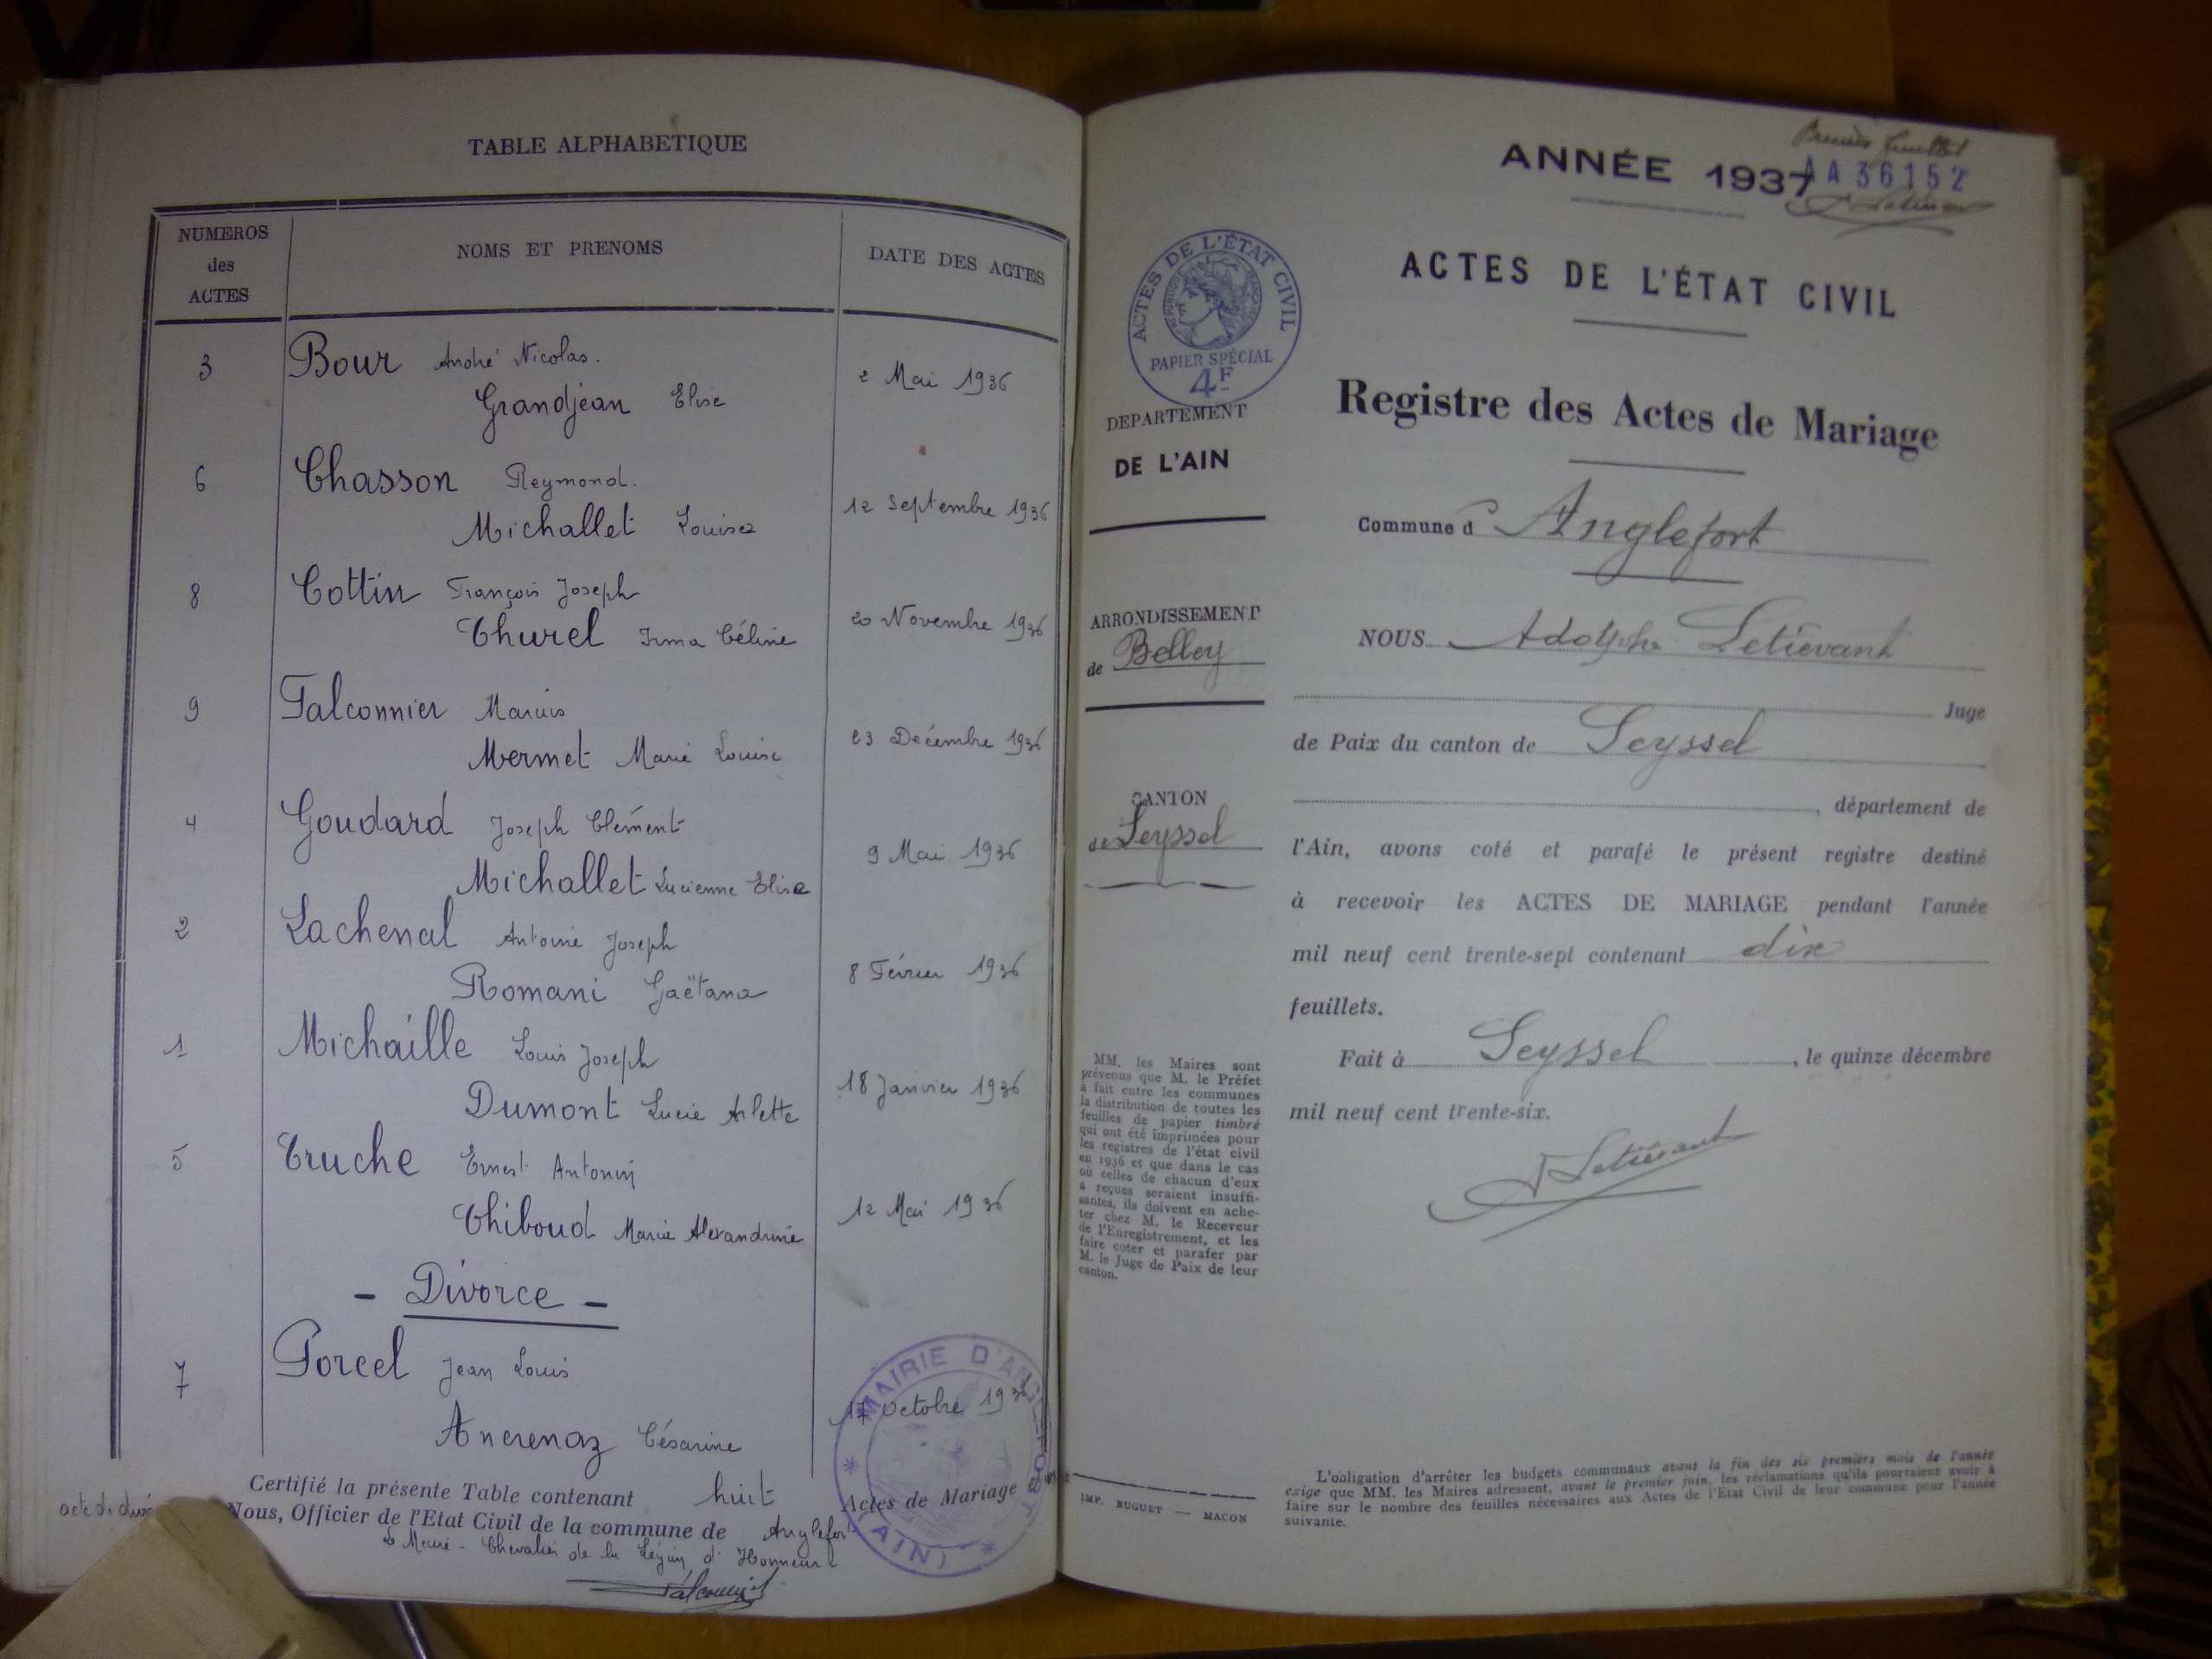 TABLE ALPHABETIQUE
NUMEROS des ACTES
NOMS ET PRENOMS
DATE DES ACTES
3 Bour André Nicolas.
Grandjean Elise
2 Mai 1936
6 Chasson Reymond.
Michallet Louise
12 Septembre 1936
8 Cottin François Joseph
Thurel Irma Céline
20 Novembre 1936
9 Falconnier Marius
Mermet Marie Louise
23 Décembre 1936
4 Goudard Joseph Clément
Michallet Lucienne Elise
9 Mai 1936
2 Lachenal Antoine Joseph
Romani Gaëtana
8 Février 1936
1 Michaille Louis Joseph
Dumont Lucie Arlette
18 Janvier 1936
5 Truche Ernest Antonin
Thiboud Marie Alexandrine
12 Mai 1936
- Divorce -
7 Porcel Jean Louis
Ancrenaz Césarine
17 Octobre 1936
Certifié la présente Table contenant huit Actes de Mariage
acte de
Nous, Officier de l'Etat Civil de la commune de Anglefort
Le Maire - Chevalier de la Légion d'Honneur
Falconnier
MAIRIE D'ANGLEFORT
(AIN)
Premier feuillet
ANNÉE 1937
AA 36152
A Letievant
ACTES DE L'ÉTAT CIVIL
RÉPUBLIQUE FRANÇAISE
PAPIER SPÉCIAL
4F
ACTES DE L'ÉTAT CIVIL
Registre des Actes de Mariage
DEPARTEMENT
DE L'AIN
Commune d'Anglefort
ARRONDISSEMENT
de Belley
CANTON
de Seyssel
NOUS Adolphe Letievant
Juge
de Paix du canton de Seyssel
, département de
l'Ain, avons coté et parafé le présent registre destiné
à recevoir les ACTES DE MARIAGE pendant l'année
mil neuf cent trente-sept contenant dix
feuillets.
Fait à Seyssel, le quinze décembre
mil neuf cent trente-six.
A Letievant
MM. les Maires sont
prévenus que M. le Préfet
à fait entre les communes
la distribution de toutes les
feuilles de papier timbré
qui ont été imprimées pour
les registres de l'état civil
en 1936 et que dans le cas
où celles de chacun d'eux
a reçues seraient insuffi-
santes, ils doivent en ache-
ter chez M. le Receveur
de l'Enregistrement, et les
faire coter et parafer par
M. le Juge de Paix de leur
canton.
IMP. BUGUET — MACON
L'obligation d'arrêter les budgets communaux avant la fin des six premiers mois de l'année
exige que MM. les Maires adressent, avant le premier juin, les réclamations qu'ils pourraient avoir à
faire sur le nombre des feuilles nécessaires aux Actes de l'Etat Civil de leur commune pour l'année
suivante.